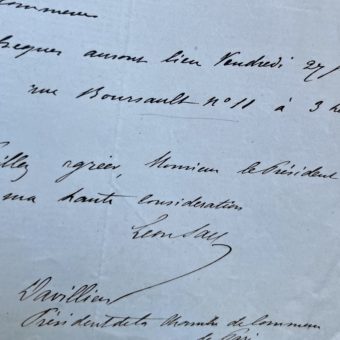 Commerce
obsèques auront lieu Vendredi 27
rue Boursault n° 11 à 3 h
agréer, Monsieur le Président
ma haute considération
Léon Say
Davillier
Président de la Chambre de Commerce
de Paris